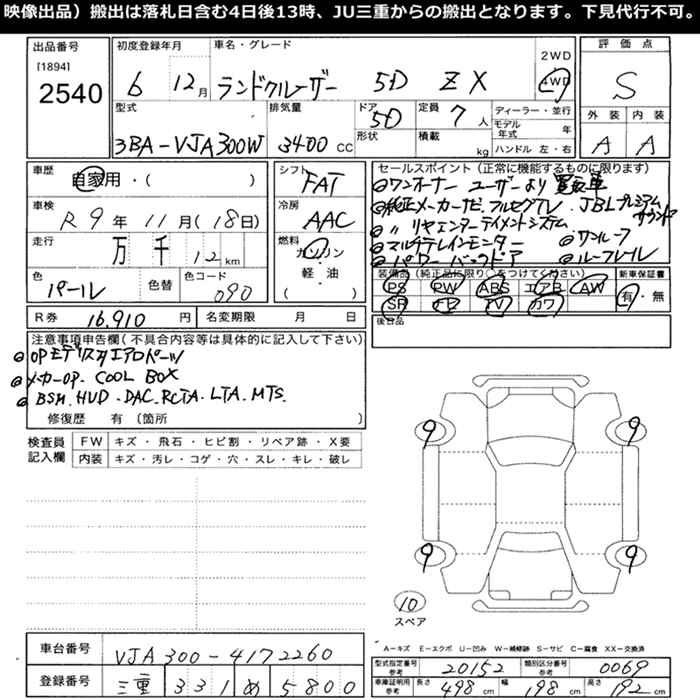 映像出品）搬出は落札日含む4日後13時、JU三重からの搬出となります。下見代行不可。
出品番号 初度登録年月 車名・グレード 評価点
[1894]
2540
6 12月 ランドクルーザー 5D ZX 2WD 4WD S
型式 排気量 ドア 定員 ディーラー・並行 外装 内装
3BA-VJA300W 3400 CC 5D 7人 モデル年式 年 A A
形状 積載 kg ハンドル 左・右
車歴 自家用・( )
シフト FAT
セールスポイント（正常に機能するものに限ります）
ワンオーナー ユーザーより買取車
純正メーカーナビ.フルセグTV.JBLプレミアムサウンド
〃 リヤエンターテイメントシステム
マルチテレインモニター ムーンルーフ
パワーバックドア ルーフレール
車検 R9年 11月(18日)
冷房 AAC
走行 万 千 12 km
燃料 ガソリン 軽・油 ( )
色 パール 色替 色コード 090
装備品（純正品に限り○をつけてください） 新車保証書
PS PW ABS エアB AW 有・無
SR TV カワ
R券 16,910 円 名変期限 月 日
後日品
注意事項申告欄（不具合内容等は具体的に記入して下さい）
OPモデリスタエアロパーツ
メーカーOP. COOL BOX
BSM.HUD.DAC.RCTA.LTA.MTS.
修復歴 有（箇所 ）
検査員記入欄 FW キズ・飛石・ヒビ割・リペア跡・X要
内装 キズ・汚レ・コゲ・穴・スレ・キレ・破レ
9 9
9 9
10
スペア
A－キズ E－エクボ U－凹み W－補修跡 S－サビ C－腐食 XX－交換済
車台番号 VJA300-4172260
登録番号 三重 331 め 5800
型式指定番号 参考 20152 類別区分番号 参考 0069
車庫証明用 参考 長さ 498 cm 幅 198 cm 高さ 192 cm